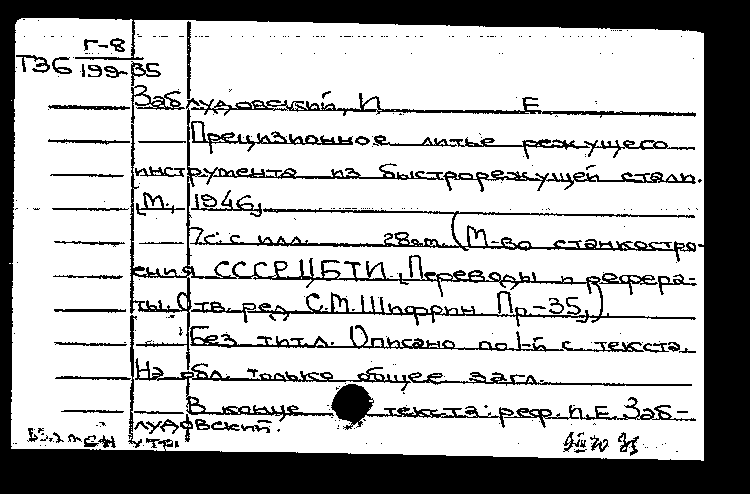 Г-8
ТЭ6 199-35
Заблудовский, И Е
Прецизионное литье режущего
инструмента из быстрорежущей стали.
[М., 1946]
7с. с илл. 28см. (М-во станкостро-
ения СССР ЦБТИ. [Переводы и рефера-
ты. Отв. ред. С.М. Шифрин Пр.-35])
Без тит.л. Описано по 1-й с текста.
На обл. только общее загл.
В конце текста: реф. И.Е. Заб-
лудовский.